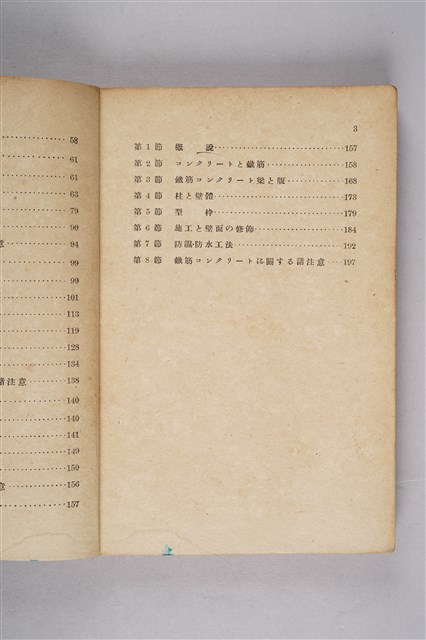 58
61
61
63
79
90
意 94
99
99
101
113
119
128
134
諸注意 138
140
140
141
149
150
意 156
157
3
第1節 概説 157
第2節 コンクリートと鐵筋 158
第3節 鐵筋コンクリート梁と版 168
第4節 柱と壁體 173
第5節 型枠 179
第6節 施工と壁面の修飾 184
第7節 防濕・防水工法 192
第8節 鐵筋コンクリートに關する諸注意 197